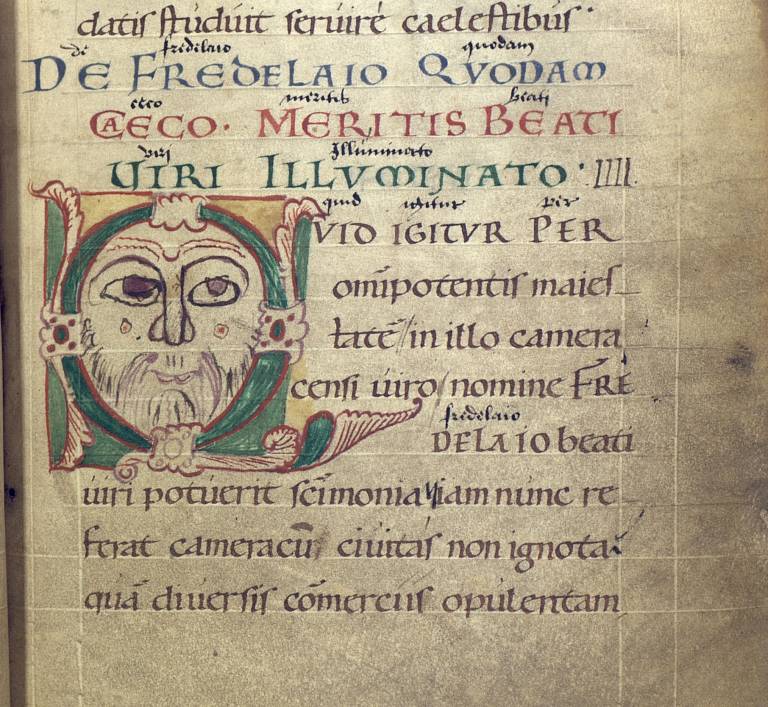 datis studuit seruire caelestibus.
de fredelaio quodam
DE FREDELAIO QVODAM
ceco meritis beati
CAECO. MERITIS BEATI
viri Illuminato
VIRI ILLVMINATO. IIII.
quid igitur per
QVID IGITVR PER
omīpotentis maies
tatē in illo camera
censi uiro nomine FRE
fredelaio
DELAIO beati
uiri potuerit scīmonia iam nunc re
ferat cameracū ciuitas non ignota
quā diuersis cōmerciis opulentam